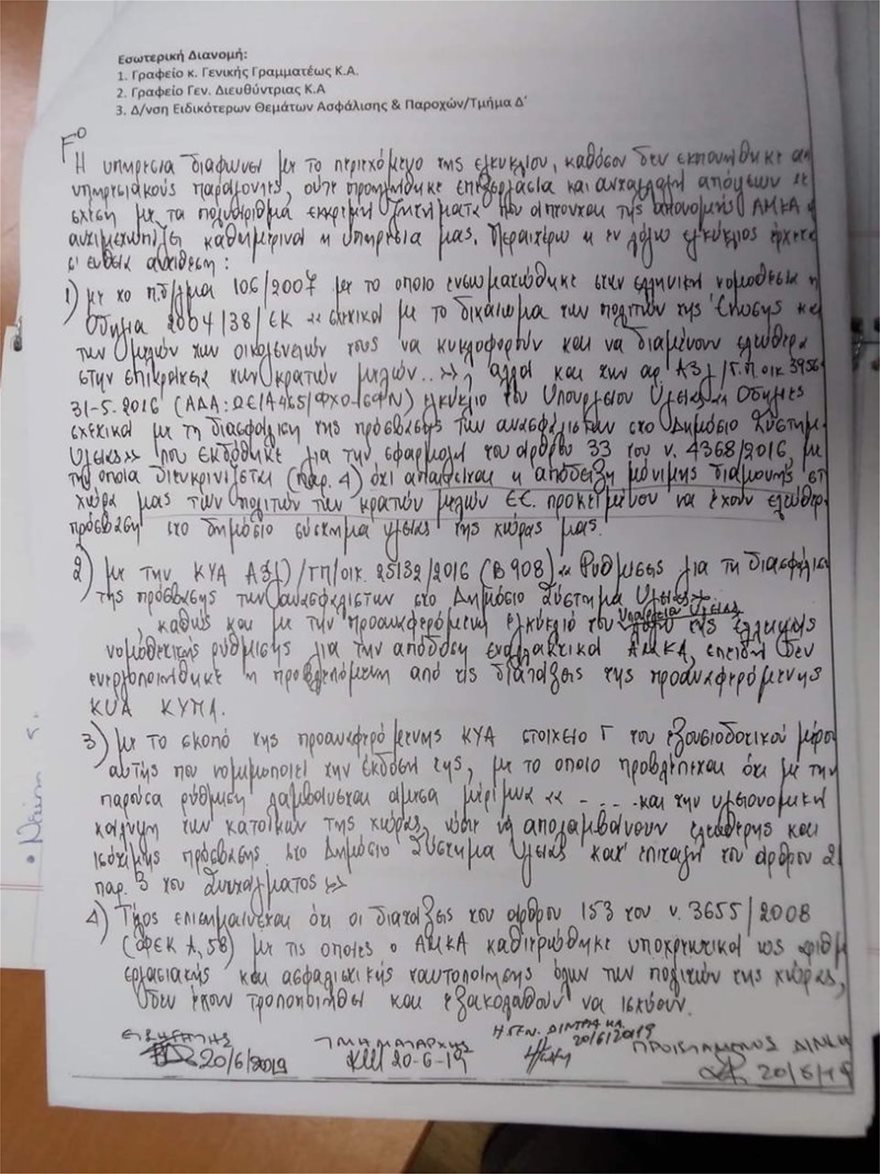 Εσωτερική Διανομή:
1. Γραφείο κ. Γενικής Γραμματέως Κ.Α.
2. Γραφείο Γεν. Διευθύντριας Κ.Α
3. Δ/νση Ειδικότερων Θεμάτων Ασφάλισης & Παροχών/Τμήμα Δ΄
Η υπηρεσία διαφωνεί με το περιεχόμενο της εγκυκλίου, καθόσον δεν εκπονήθηκε απ
υπηρεσιακούς παράγοντες, ούτε προηγήθηκε επεξεργασία και ανταλλαγή απόψεων σε
σχέση με τα πολυάριθμα εκκρεμή ζητήματα που άπτονται της απονομής ΑΜΚΑ
αντιμετωπίζει καθημερινά η υπηρεσία μας. Περαιτέρω η εν λόγω εγκύκλιος έρχεται
σ' ευθεία αντίθεση:
1) με το π.δ/γμα 106/2007 με το οποίο ενσωματώθηκε στην ελληνική νομοθεσία η
Οδηγία 2004/38/ΕΚ «σχετικά με το δικαίωμα των πολιτών της Ένωσης και
των μελών των οικογενειών τους να κυκλοφορούν και να διαμένουν ελεύθερα
στην επικράτεια των κρατών μελών..», αλλά και την αρ. Α3γ/Γ.Π.οικ 3956
31-5.2016 εγκύκλιο του Υπουργείου Υγείας «Οδηγίες
σχετικά με τη διασφάλιση της πρόσβασης των ανασφάλιστων στο Δημόσιο Σύστημ
Υγείας» που εκδόθηκε για την εφαρμογή του άρθρου 33 του ν. 4368/2016, με
την οποία διευκρινίζεται (παρ. 4) ότι απαιτείται η απόδειξη μόνιμης διαμονής στ
χώρα μας των πολιτών των κρατών μελών ΕΕ. προκειμένου να έχουν ελεύθερ
πρόσβαση στο δημόσιο σύστημα υγείας της χώρας μας.
2) με την ΚΥΑ Α3(γ)/ΓΠ/οικ. 25132/2016 (Β 908) «Ρυθμίσεις για τη διασφάλισ
της πρόσβασης των ανασφάλιστων στο Δημόσιο Σύστημα Υγείας»
καθώς και με την προαναφερόμενη εγκύκλιο του Υπουργείου Υγείας λόγω της έλλειψης
νομοθετικής ρύθμισης για την απόδοση εναλλακτικά ΑΜΚΑ, επειδή δεν
ενεργοποιήθηκε η προβλεπόμενη από τις διατάξεις της προαναφερόμενης
ΚΥΑ ΚΥΠΑ.
3) με το σκοπό της προαναφερόμενης ΚΥΑ στοιχείο Γ του εξουσιοδοτικού μέρου
αυτής που νομιμοποιεί την έκδοσή της, με το οποίο προβλέπεται ότι με την
παρούσα ρύθμιση λαμβάνεται άμεσα μέριμνα «.... και την υγειονομική
κάλυψη των κατοίκων της χώρας, ώστε να απολαμβάνουν ελεύθερης και
ισότιμης πρόσβασης στο Δημόσιο Σύστημα Υγείας κατ' επιταγή του άρθρου 21
παρ. 3 του Συντάγματος»
4) Τέλος επισημαίνεται ότι οι διατάξεις του άρθρου 153 του ν. 3655/2008
(ΦΕΚ Α, 58) με τις οποίες ο ΑΜΚΑ καθιερώθηκε υποχρεωτικά ως αριθμ
εργασιακής και ασφαλιστικής ταυτοποίησης όλων των πολιτών της χώρας,
δεν έχουν τροποποιηθεί και εξακολουθούν να ισχύουν.
ΕΙΣΗΓΗΤΗΣ ΤΜΗΜΑΤΑΡΧΗΣ Η ΓΕΝ. ΔΙΝΤΡΙΑ ΚΑ ΠΡΟΙΣΤΑΜΕΝΟΣ Δ/ΝΣΗ
20/6/2019 20-6-19 20/6/2019 20/6/19